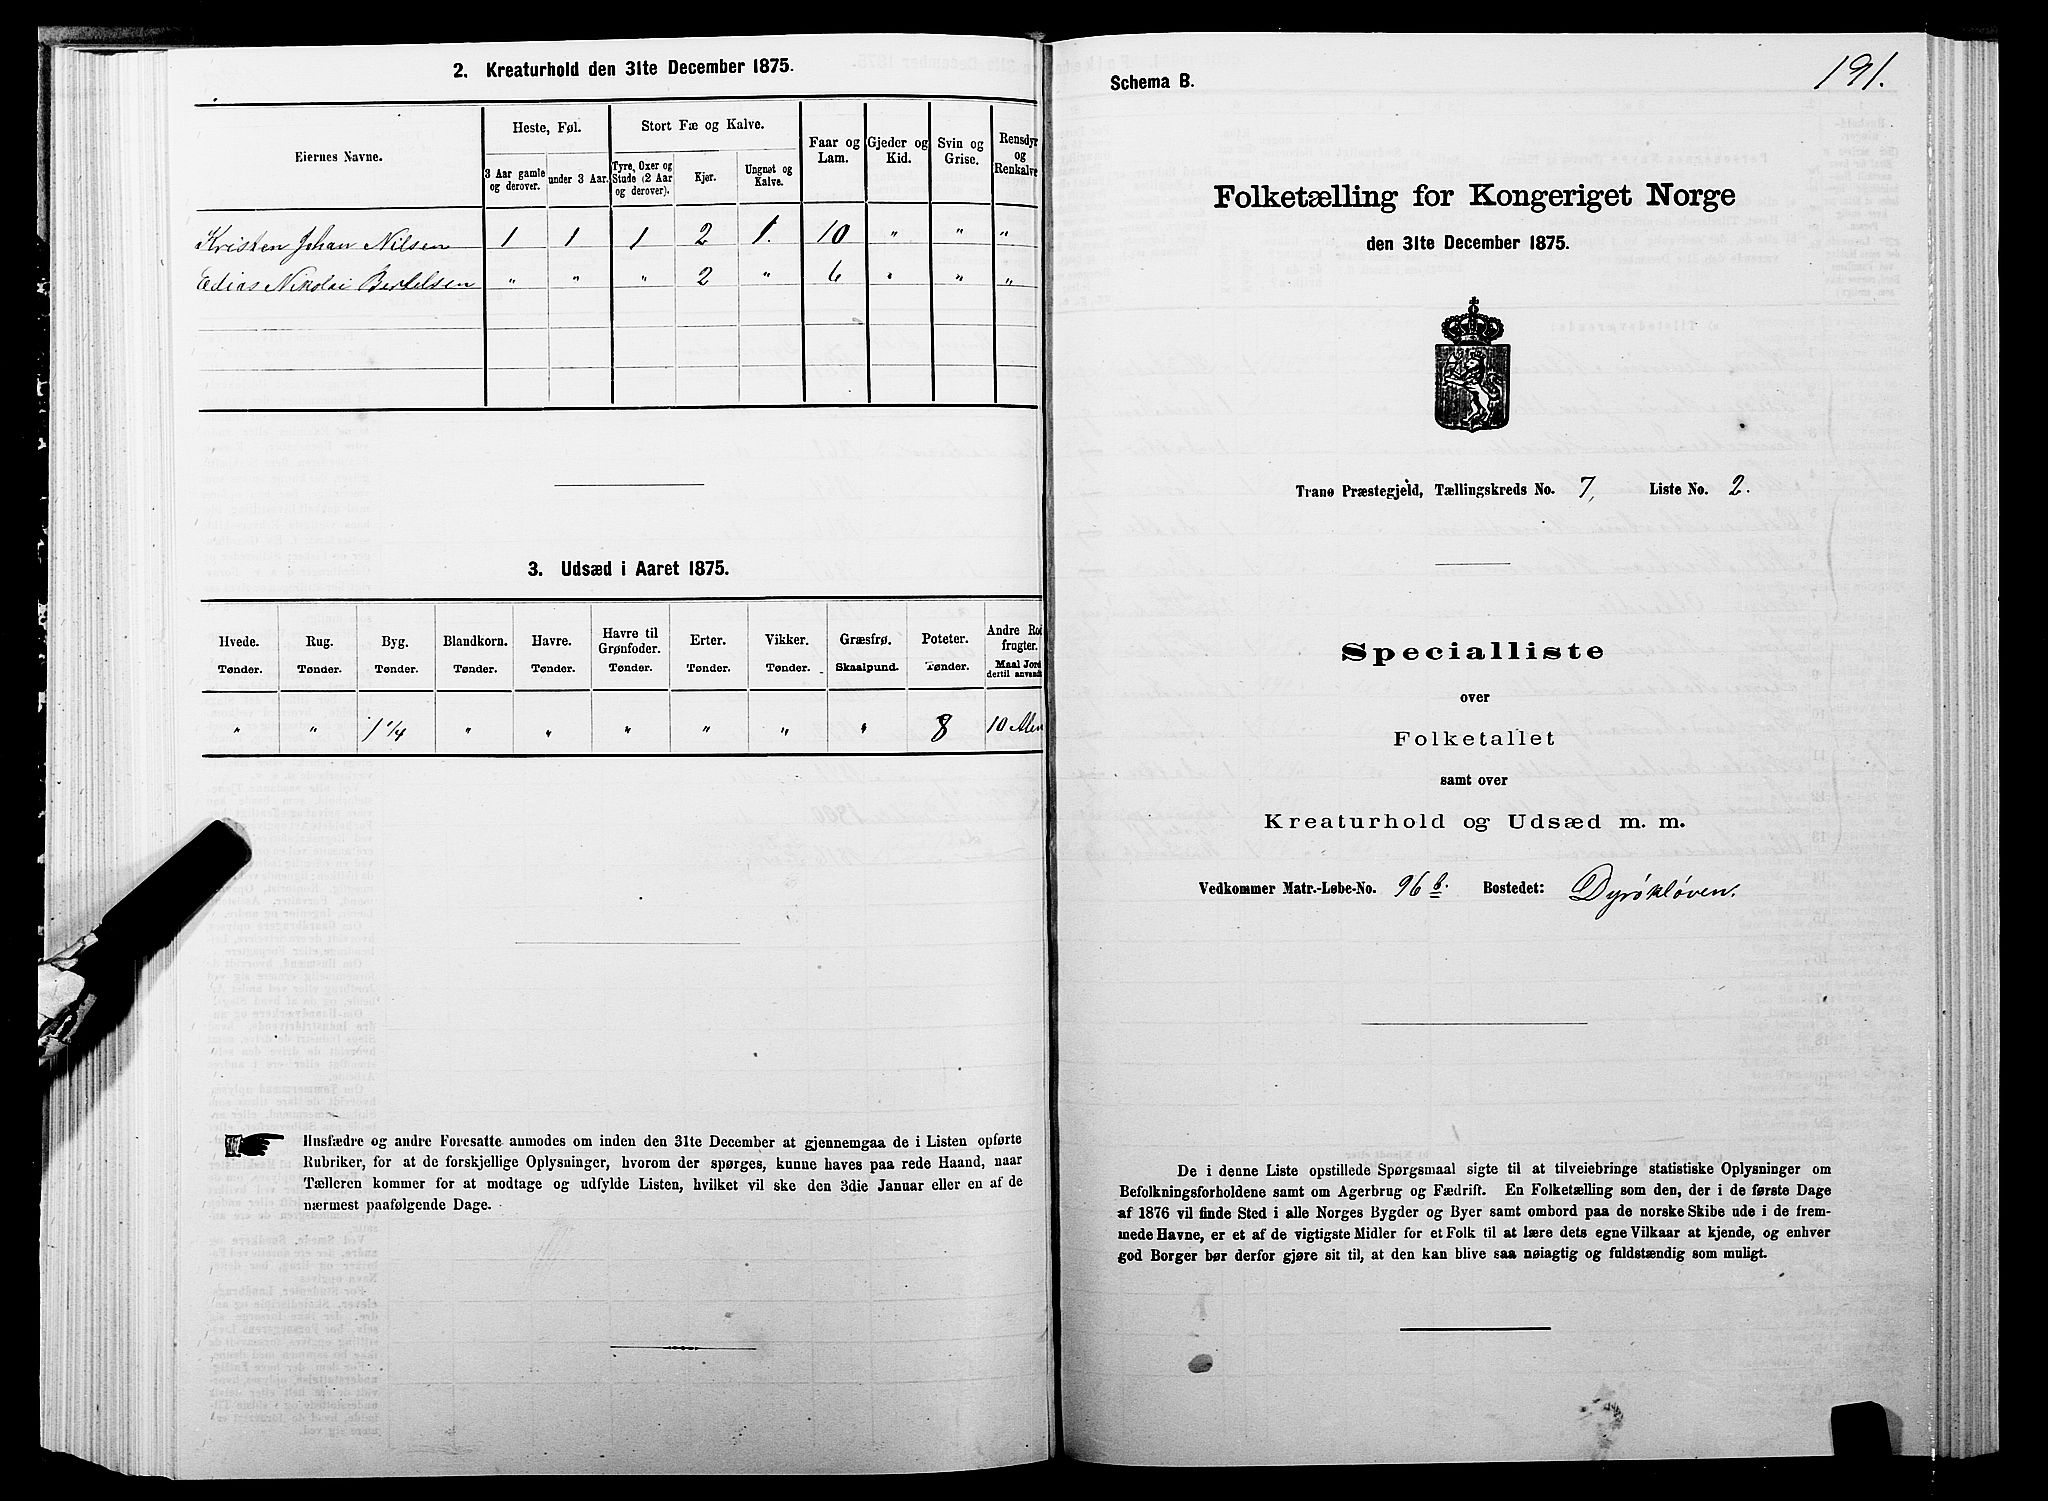 2. Kreaturhold den 31te December 1875.
Eiernes Navne.
Heste, Føl.
Stort Fæ og Kalve.
Faar og Lam.
Gjeder og Kid.
Svin og Grise.
Rensdyr og Renkalve
3 Aar gamle og derover.
under 3 Aar.
Tyre, Oxer og Stude (2 Aar og derover).
Kjør.
Ungnøt og Kalve.
Kristen Johan Nilsen 1 1 1 2 1. 10 " " "
Edias Nikolai Bertelsen " " " 2 " 6 " " "
3. Udsæd i Aaret 1875.
Hvede. Rug. Byg. Blandkorn. Havre. Havre til Grønfoder. Erter. Vikker. Græsfrø. Poteter. Andre Rodfrugter.
Tønder. Tønder. Tønder. Tønder. Tønder. Tønder. Tønder. Tønder. Skaalpund. Tønder. Maal Jord dertil anvendt
" " 1 1/4 " " " " " " 8 10 Alen
Husfædre og andre Foresatte anmodes om inden den 31te December at gjennemgaa de i Listen opførte
Rubriker, for at de forskjellige Oplysninger, hvorom der spørges, kunne haves paa rede Haand, naar
Tælleren kommer for at modtage og udfylde Listen, hvilket vil ske den 3die Januar eller en af de
nærmest paafølgende Dage.
191.
Schema B.
Folketælling for Kongeriget Norge
den 31te December 1875.
Tranø Præstegjeld, Tællingskreds No. 7, Liste No. 2.
Specialliste
over
Folketallet
samt over
Kreaturhold og Udsæd m. m.
Vedkommer Matr.-Løbe-No. 96 b. Bostedet: Dyrøkløven.
De i denne Liste opstillede Spørgsmaal sigte til at tilveiebringe statistiske Oplysninger om
Befolkningsforholdene samt om Agerbrug og Fædrift. En Folketælling som den, der i de første Dage
af 1876 vil finde Sted i alle Norges Bygder og Byer samt ombord paa de norske Skibe ude i de frem-
mede Havne, er et af de vigtigste Midler for et Folk til at lære dets egne Vilkaar at kjende, og enhver
god Borger bør derfor gjøre sit til, at den kan blive saa nøiagtig og fuldstændig som muligt.